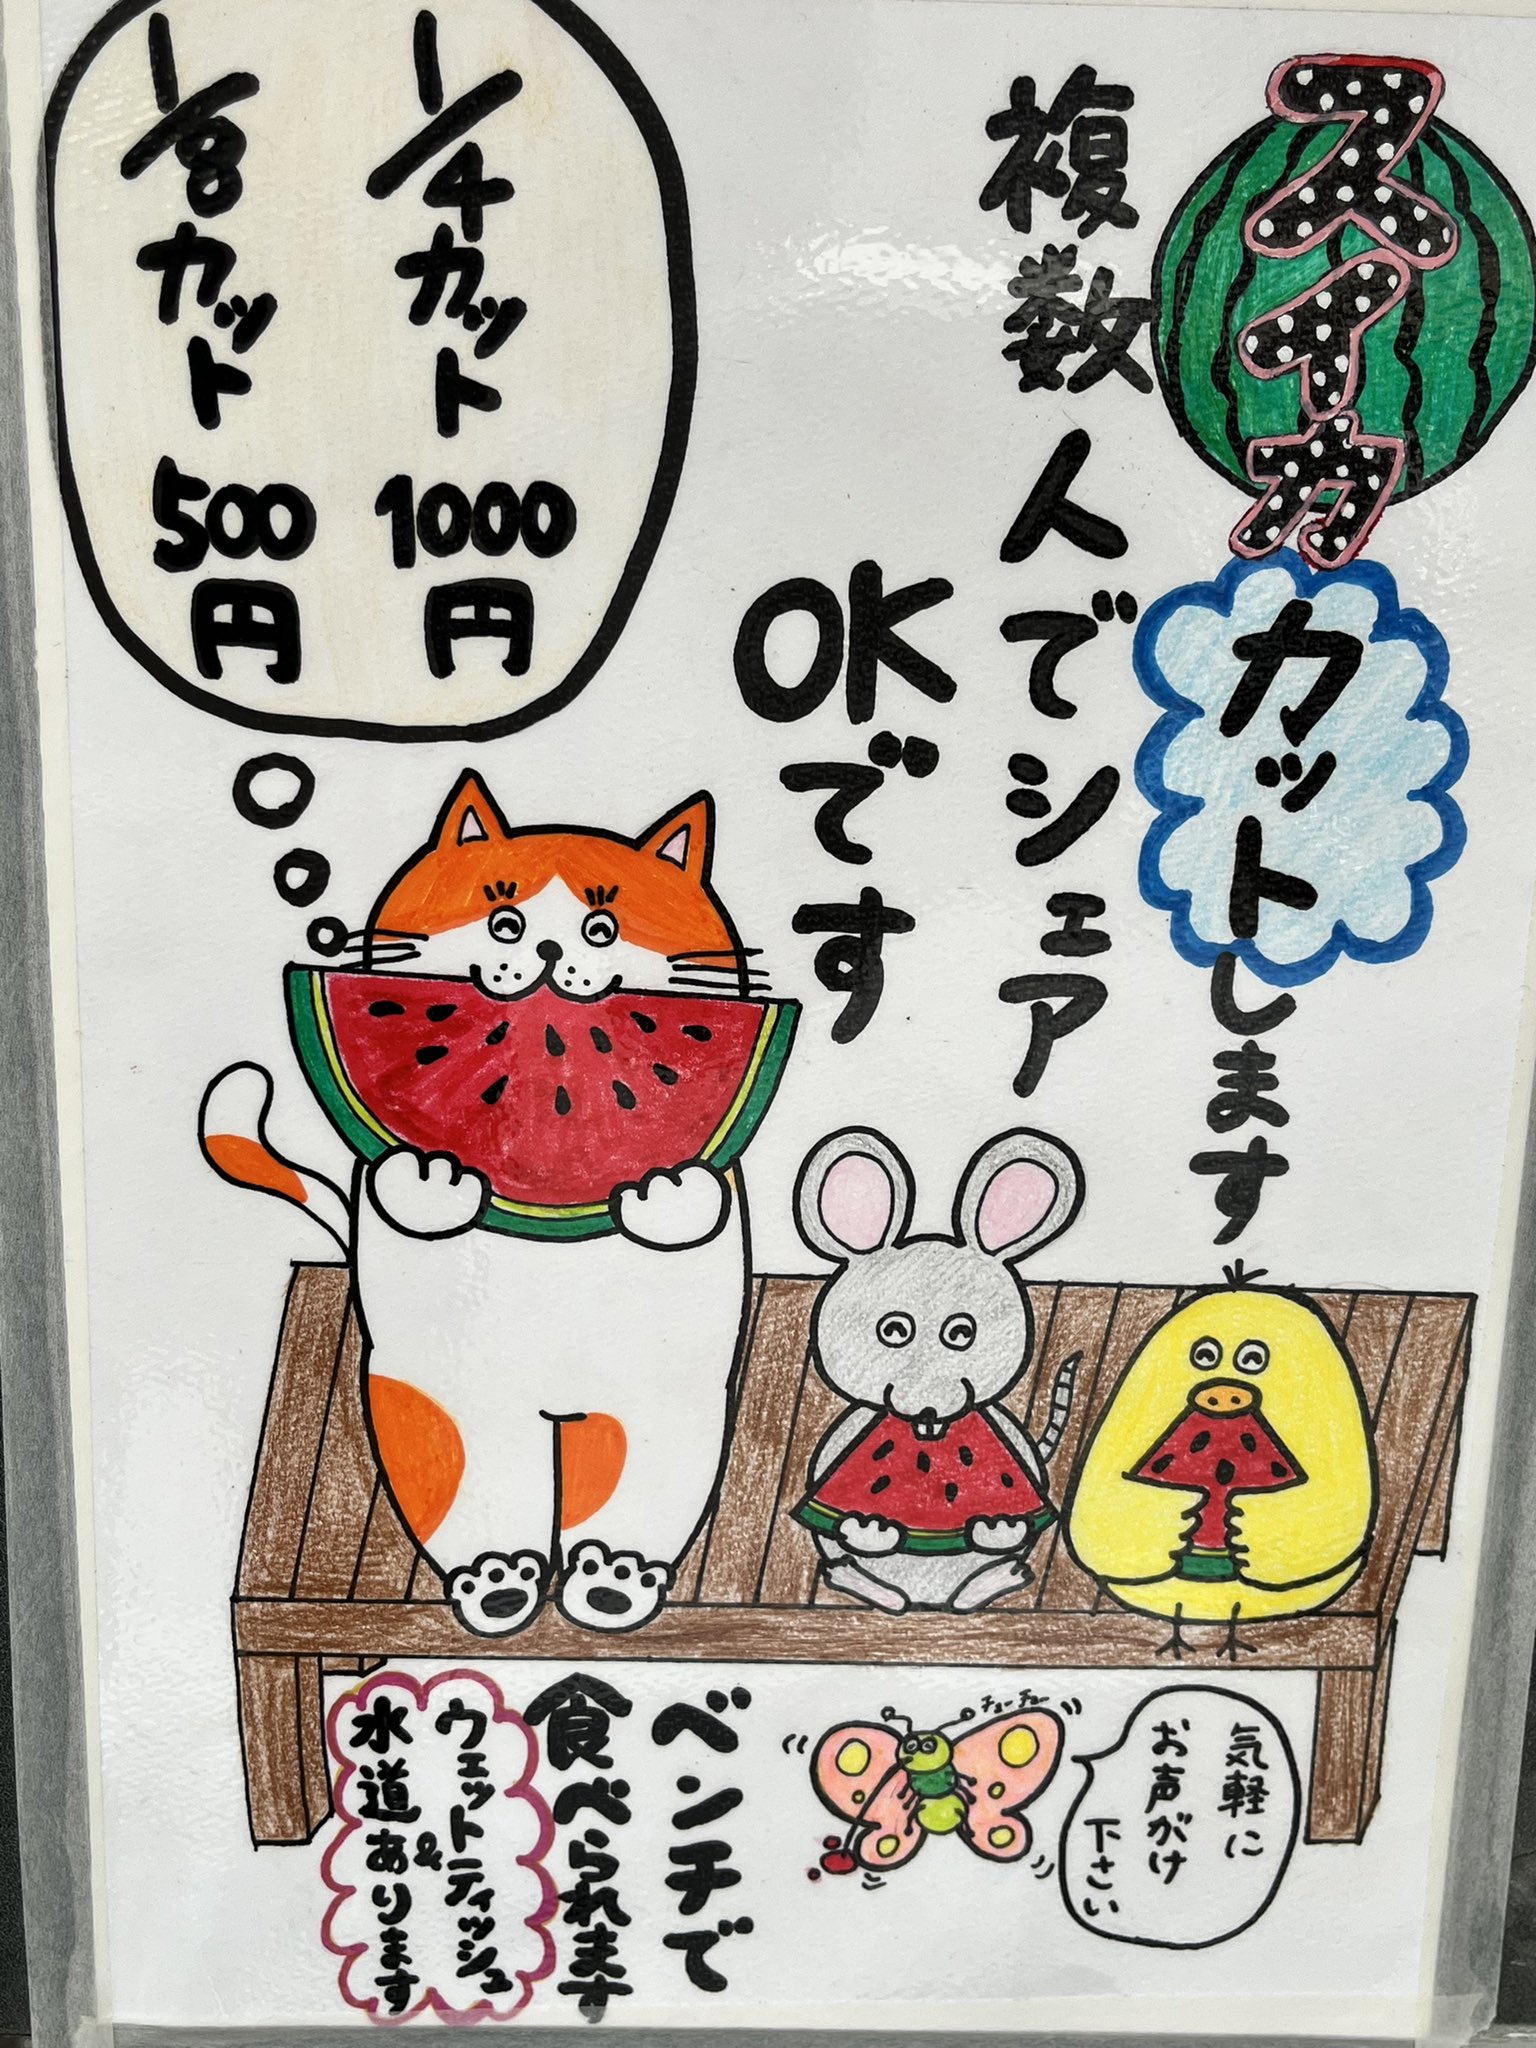 スイカカットします
複数人でシェア
OKです
1/4カット 1000円
1/8カット 500円
チューチュー
気軽に
お声がけ
下さい
ベンチで
食べられます
ウェットティッシュ
&
水道あります